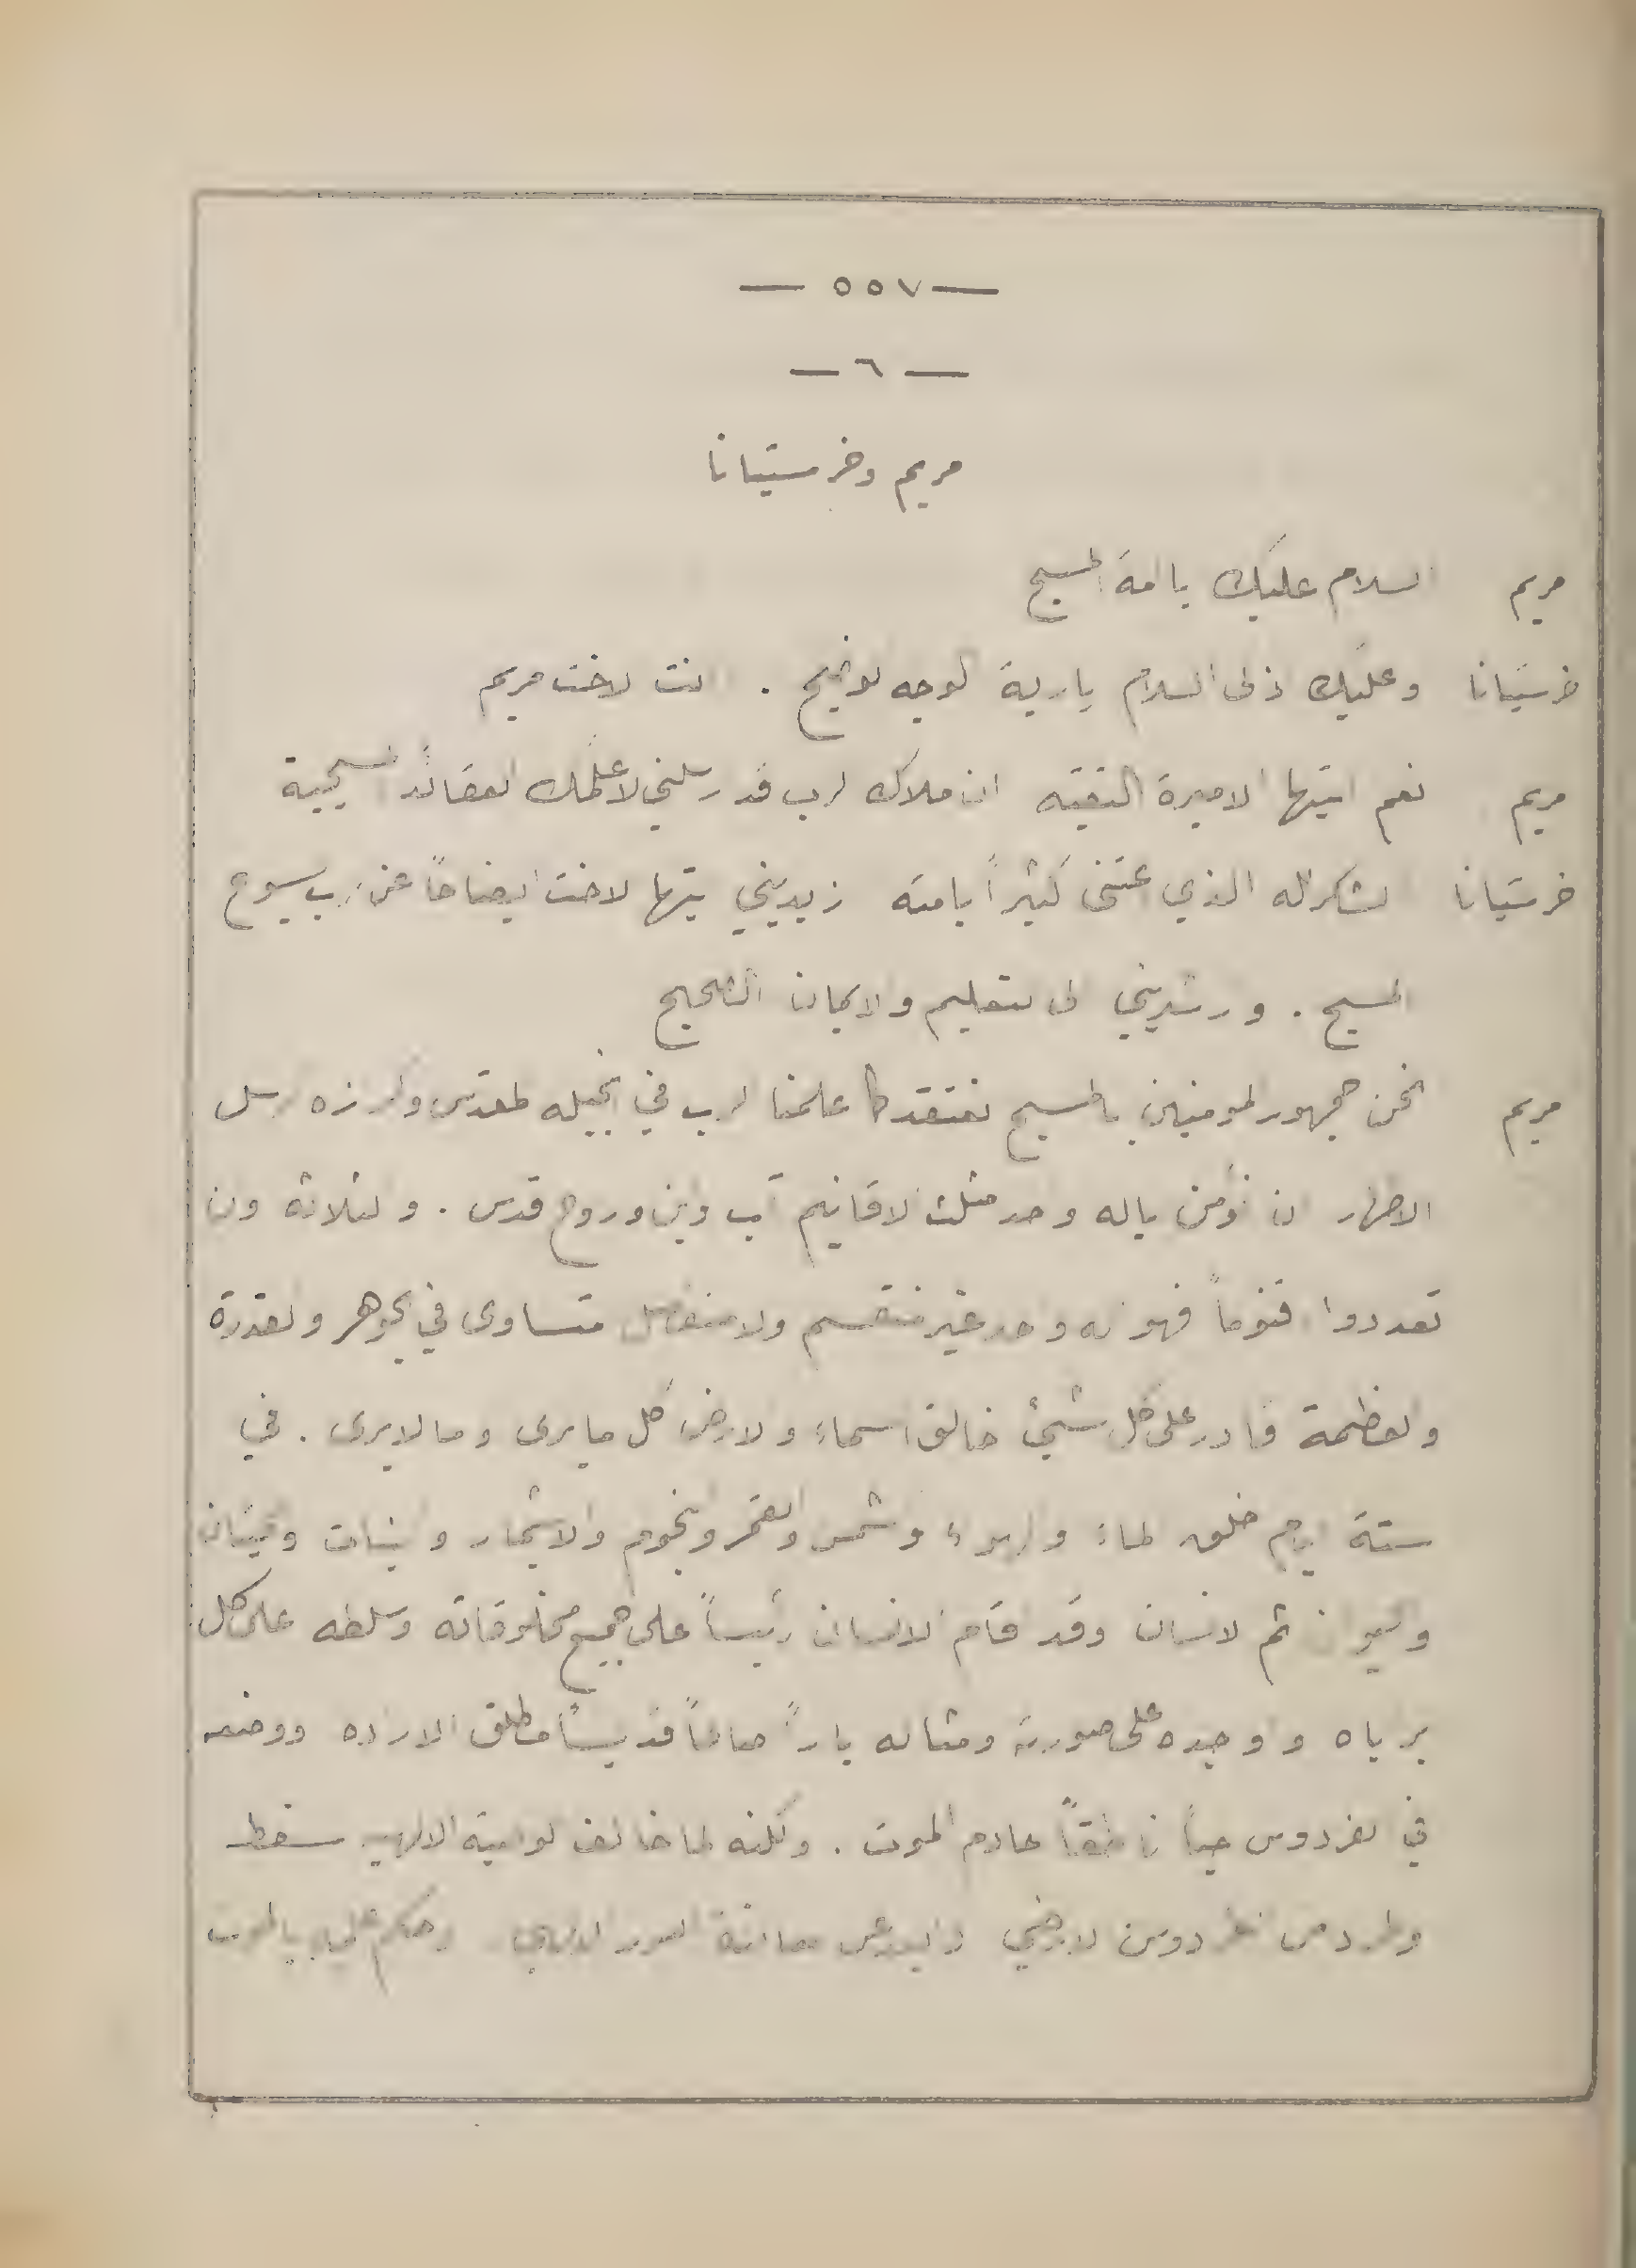 — ٥٥٧ —
— ٦ —
مريم وخرستيانا
مريم السلام عليك يا امة المسيح
خرستيانا وعليك ذكى السلام يا ربة الوجه الوضيح . انت الاخت مريم
مريم نعم ايتها الاميرة التقيه ان ملاك الرب قد ارسلني لاعلمك العقائد المسيحية
خرستيانا الشكر لله الذي اعتنى كثيراً بامته زيديني ايتها الاخت ايضاحاً عن الرب يسوع
المسيح . وارشديني الى التعليم والايمان الصحيح
مريم نحن جمهور المومنين بالمسيح نعتقد كما علمنا الرب في انجيله المقدس وكرزه الرسل
الاطهار ان نؤمن باله واحد مثلث الاقانيم آب وابن وروح قدس . والثلاثة وان
تعددوا اقنوماً فهو اله واحد غير منقسم ولا منفصل متساوى في الجوهر والقدرة
والعظمة قادر على كل شيئ خالق السماء والارض كل ما يرى وما لا يرى . في
ستة ايام خلق الماء والهواء والشمس والقمر والنجوم والاشجار والنبات والحيتان
والحيوان ثم الانسان وقد اقام الانسان رئيساً على جميع مخلوقاته وسلطه على كل
براياه واوجده على صورته ومثاله باراً صالحاً قديساً مطلق الاراده ووضعه
في الفردوس حياً ناطقاً عادم الموت . ولكنه لما خالف الوصية الالهيه سقط
وطرد من الفردوس الارضي وحكم عليه بالموت